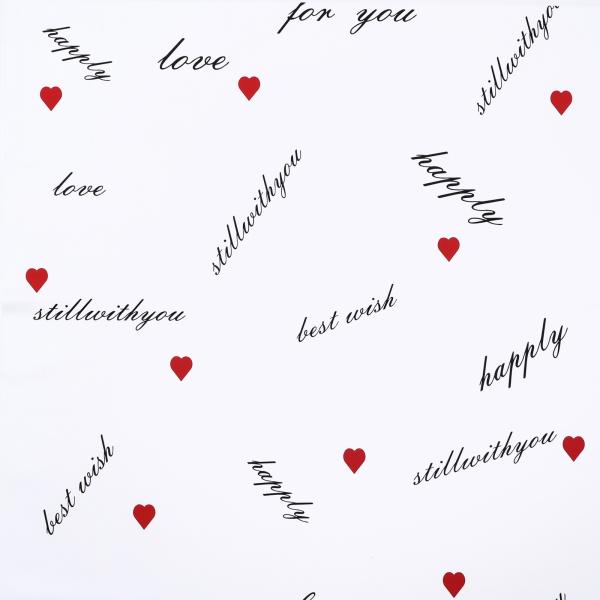 for you
happly
love
stillwithyou
love
stillwithyou
happly
stillwithyou
best wish
happly
best wish
happly
stillwithyou